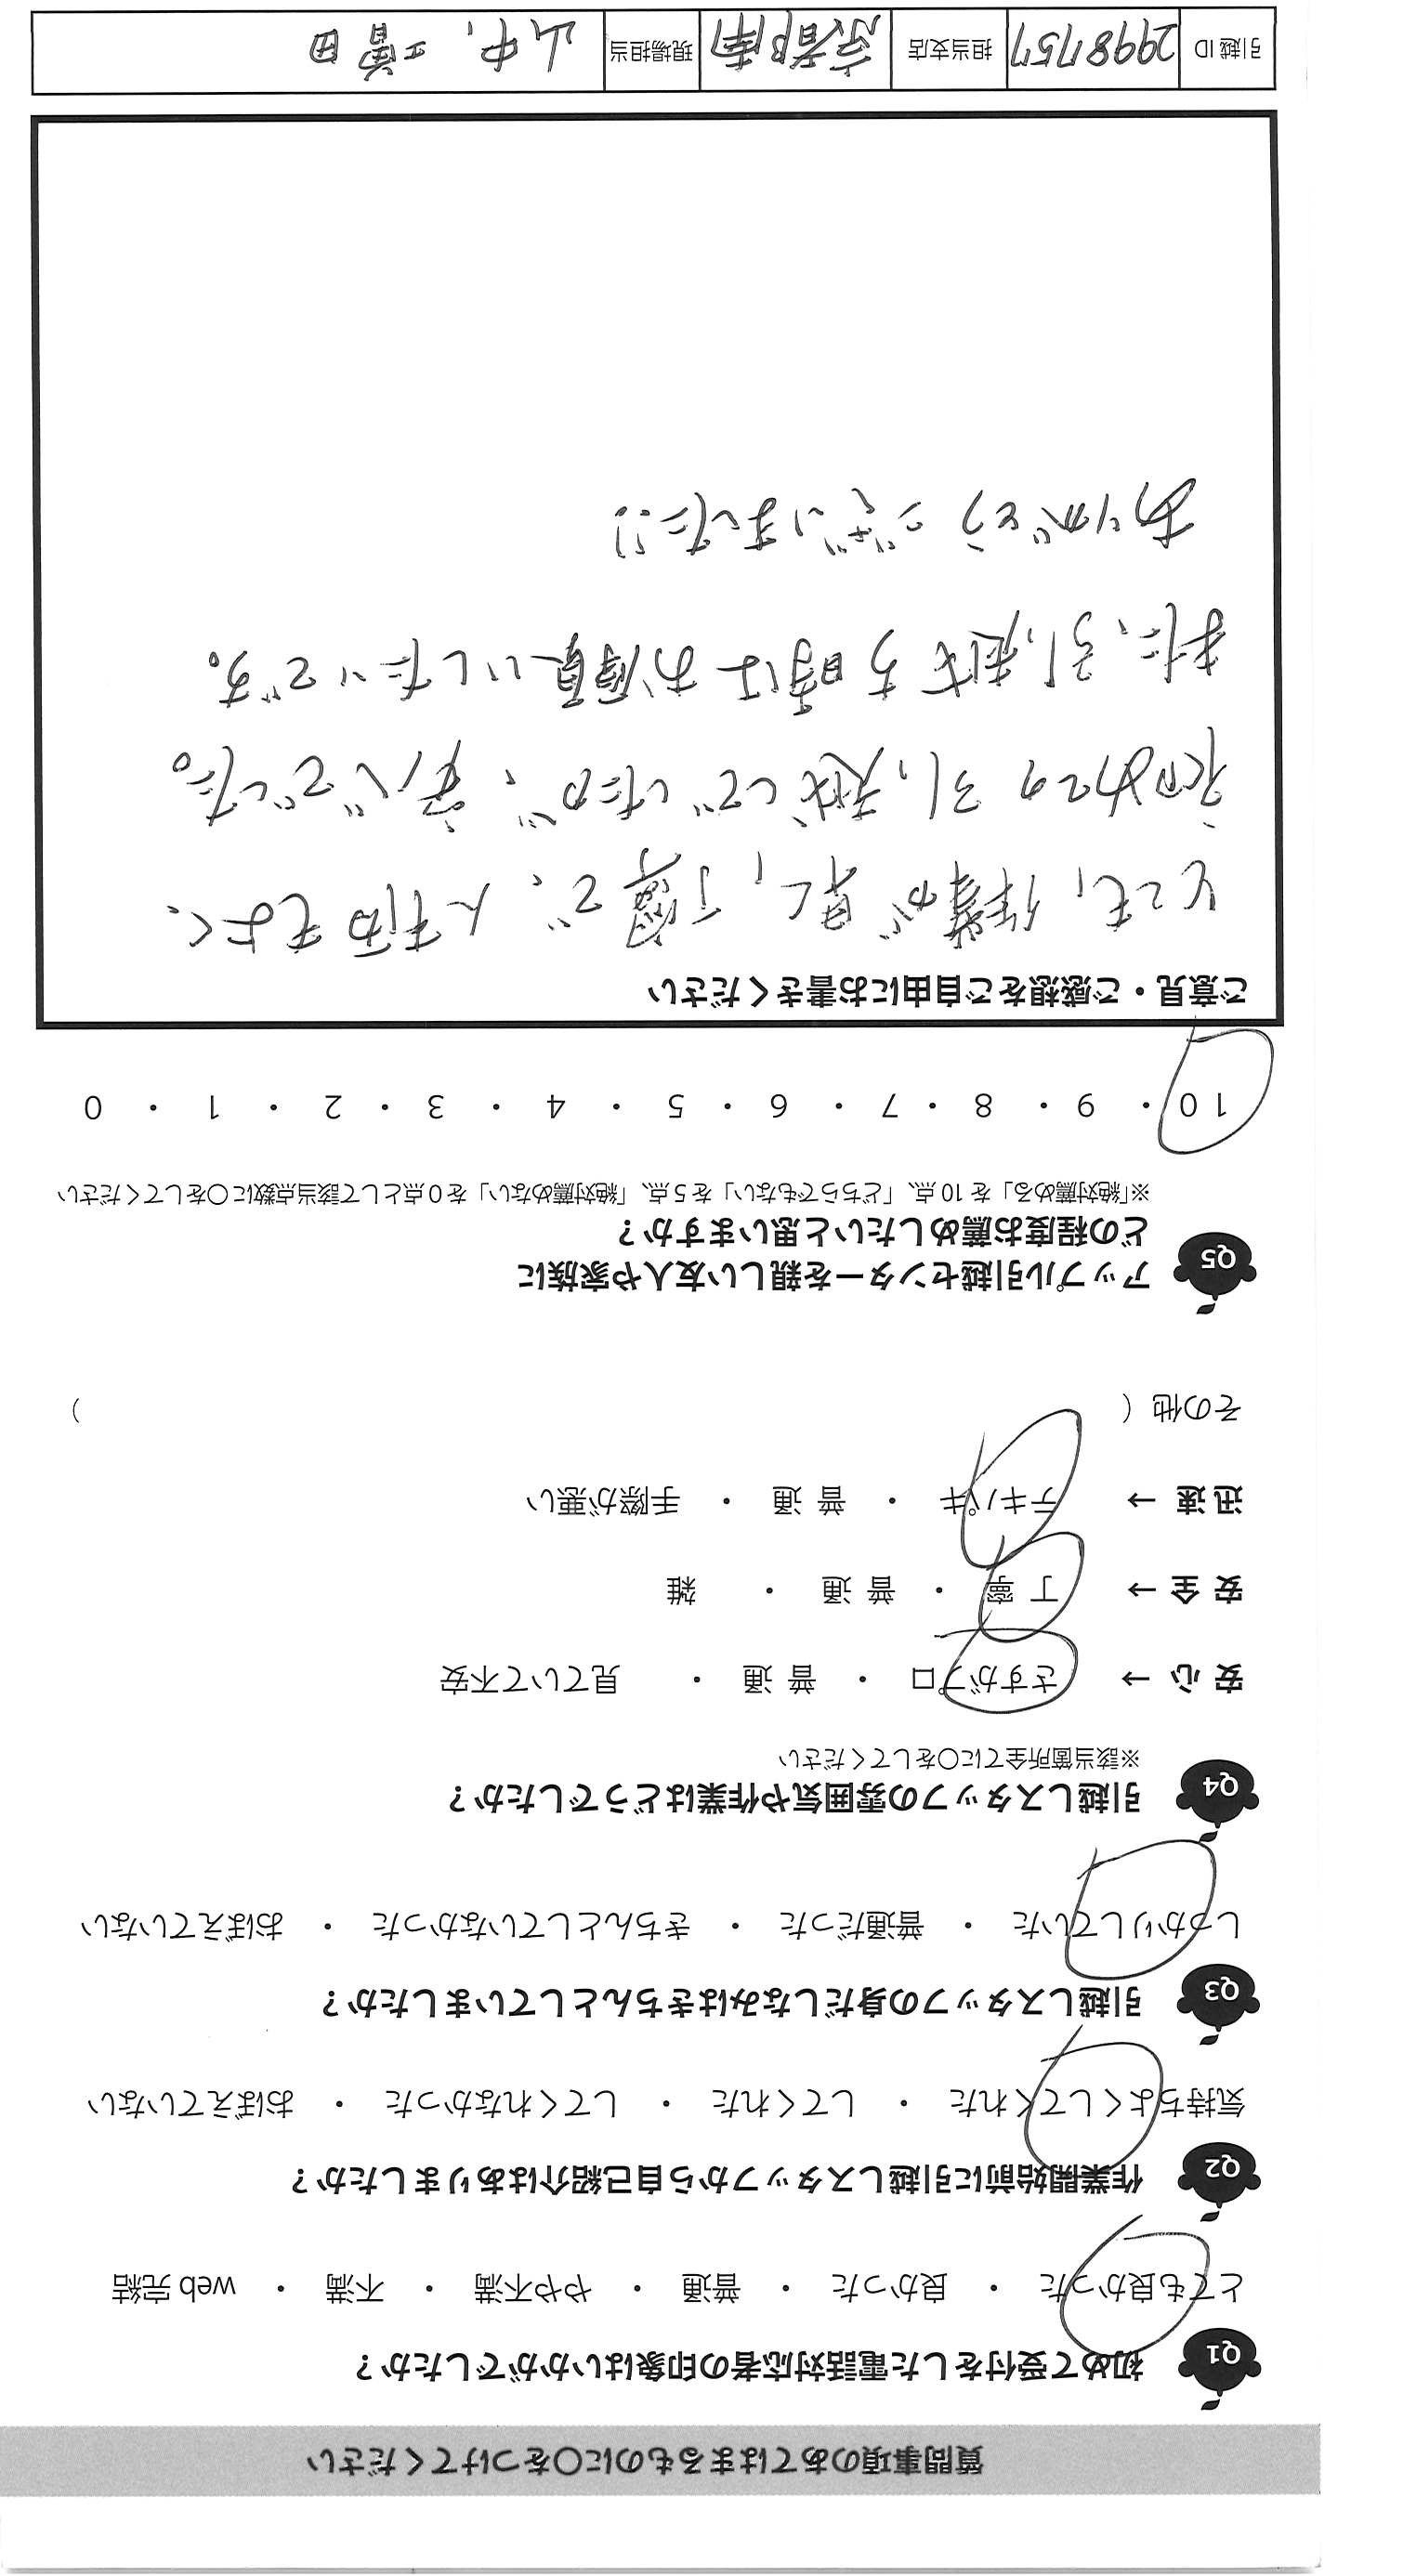 質問事項のあてはまるものに〇をつけてください
Q1 初めて受付をした電話対応者の印象はいかがでしたか？
とても良かった ・ 良かった ・ 普通 ・ やや不満 ・ 不満 ・ web 完結
Q2 作業開始前に引越しスタッフから自己紹介はありましたか？
気持ちよくしてくれた ・ してくれた ・ してくれなかった ・ おぼえていない
Q3 引越しスタッフの身だしなみはきちんとしていましたか？
しっかりしていた ・ 普通だった ・ きちんとしていなかった ・ おぼえていない
Q4 引越しスタッフの雰囲気や作業はどうでしたか？
※該当箇所全てに〇をしてください
安 心 → さすがプロ ・ 普 通 ・ 見ていて不安
安 全 → 丁 寧 ・ 普 通 ・ 雑
迅 速 → テキパキ ・ 普 通 ・ 手際が悪い
その他（ ）
Q5 アップル引越センターを親しい友人や家族に
どの程度お薦めしたいと思いますか？
※「絶対薦める」を 10 点、「どちらでもない」を 5 点、「絶対薦めない」を 0 点として該当点数に〇をしてください
10 ・ 9 ・ 8 ・ 7 ・ 6 ・ 5 ・ 4 ・ 3 ・ 2 ・ 1 ・ 0
ご意見・ご感想をご自由にお書きください
とても、作業が早く、丁寧で、人柄もよく、
初めての引越しでしたが、楽でした。
また、引越す時はお願いしたいです。
ありがとうございました!!
引越 ID 2998757 担当支店 京都南 現場担当 山中、増田